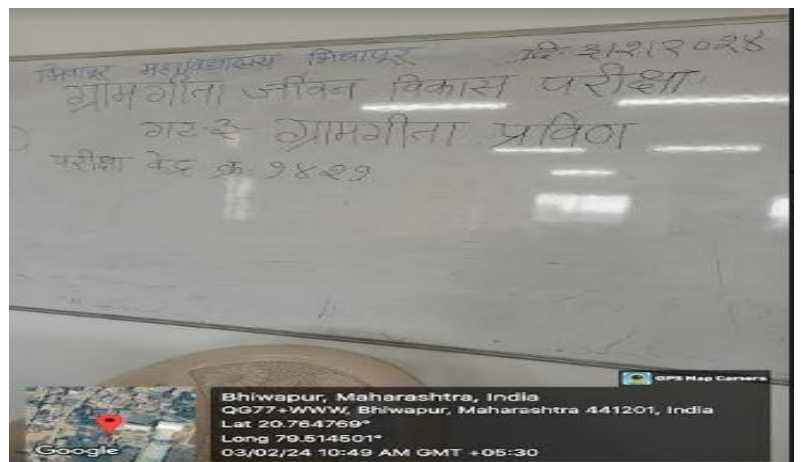 भिवापूर महाविद्यालय भिवापूर दि ३।२।२०२४
ग्रामगीता जीवन विकास परीक्षा
गट-३- ग्रामगीता प्रविण
परीक्षा केंद्र क्र. १४२१
GPS Map Camera
Bhiwapur, Maharashtra, India
QG77+WWW, Bhiwapur, Maharashtra 441201, India
Lat 20.764769°
Long 79.514501°
03/02/24 10:49 AM GMT +05:30
Google